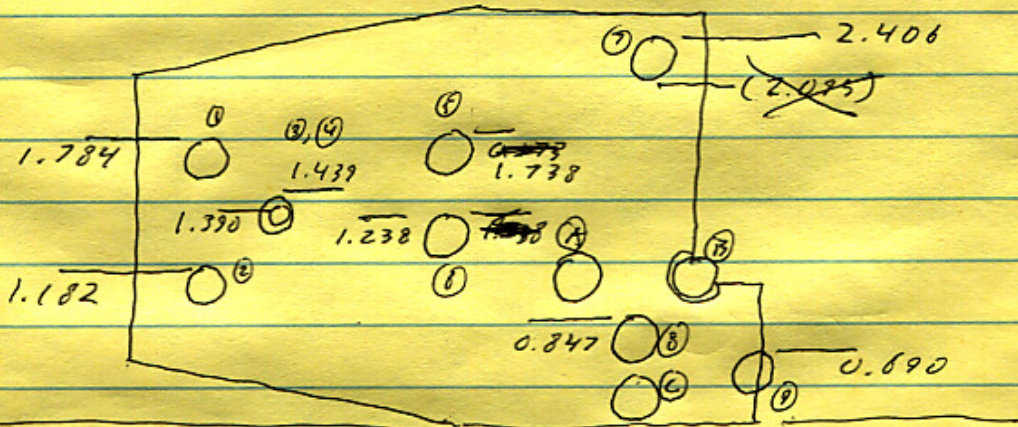 ⑦ 2.406
(2.095)
① ⑤
③,④
1.784 1.439 1.738
1.390 1.238 Ⓐ Ⓑ
1.182 ② ⑥
0.847 ⑧
0.690
Ⓒ ⑨